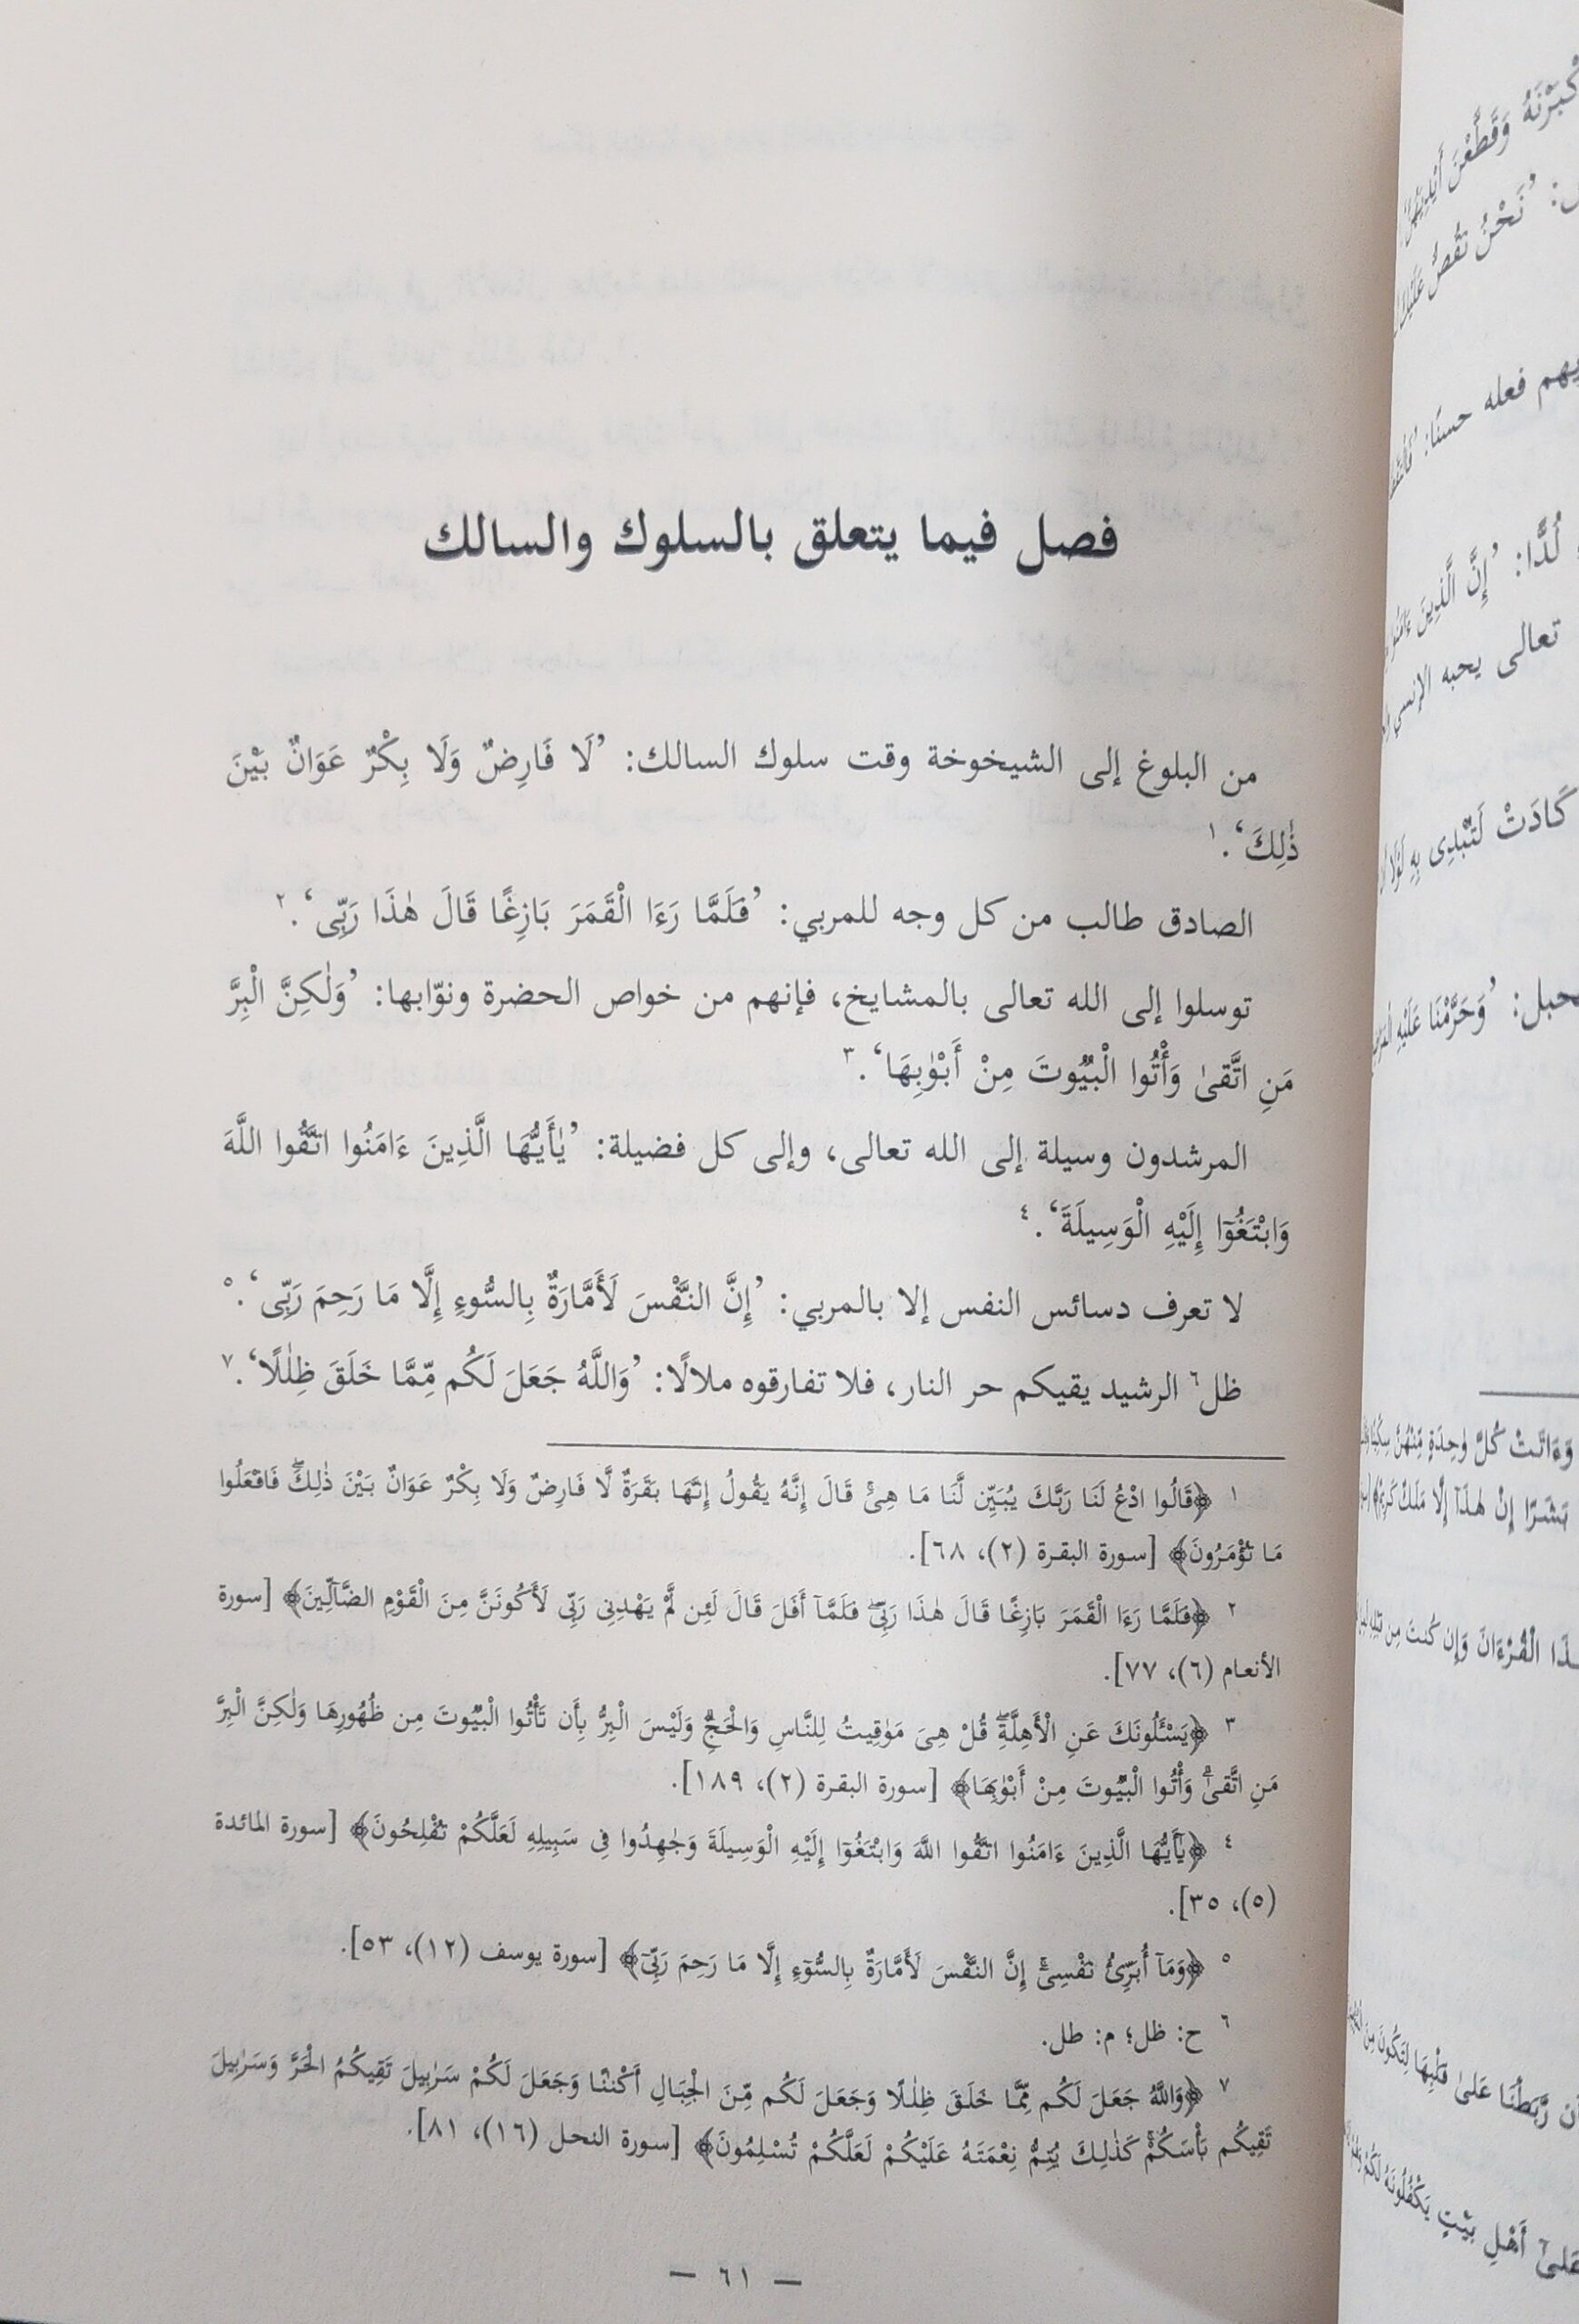 فصل فيما يتعلق بالسلوك والسالك
من البلوغ إلى الشيخوخة وقت سلوك السالك: ’لَا فَارِضٌ وَلَا بِكْرٌ عَوَانٌ بَيْنَ
ذٰلِكَ‘.١
الصادق طالب من كل وجه للمربي: ’فَلَمَّا رَءَا الْقَمَرَ بَازِغًا قَالَ هٰذَا رَبِّى‘.٢
توسلوا إلى الله تعالى بالمشايخ، فإنهم من خواص الحضرة ونوّابها: ’وَلٰكِنَّ الْبِرَّ
مَنِ اتَّقىٰ وَأْتُوا الْبُيُوتَ مِنْ أَبْوٰبِهَا‘.٣
المرشدون وسيلة إلى الله تعالى، وإلى كل فضيلة: ’يٰأَيُّهَا الَّذِينَ ءَامَنُوا اتَّقُوا اللَّهَ
وَابْتَغُوٓا إِلَيْهِ الْوَسِيلَةَ‘.٤
لا تعرف دسائس النفس إلا بالمربي: ’إِنَّ النَّفْسَ لَأَمَّارَةٌ بِالسُّوءِ إِلَّا مَا رَحِمَ رَبِّى‘.٥
ظل٦ الرشيد يقيكم حر النار، فلا تفارقوه ملالًا: ’وَاللَّهُ جَعَلَ لَكُم مِّمَّا خَلَقَ ظِلٰلًا‘.٧
١ ﴿قَالُوا ادْعُ لَنَا رَبَّكَ يُبَيِّن لَّنَا مَا هِىَۚ قَالَ إِنَّهُ يَقُولُ إِنَّهَا بَقَرَةٌ لَّا فَارِضٌ وَلَا بِكْرٌ عَوَانٌ بَيْنَ ذٰلِكَۖ فَافْعَلُوا
مَا تُؤْمَرُونَ﴾ [سورة البقرة (٢)، ٦٨].
٢ ﴿فَلَمَّا رَءَا الْقَمَرَ بَازِغًا قَالَ هٰذَا رَبِّىۖ فَلَمَّآ أَفَلَ قَالَ لَئِن لَّمْ يَهْدِنِى رَبِّى لَأَكُونَنَّ مِنَ الْقَوْمِ الضَّآلِّينَ﴾ [سورة
الأنعام (٦)، ٧٧].
٣ ﴿يَسْـَٔلُونَكَ عَنِ الْأَهِلَّةِۖ قُلْ هِىَ مَوٰقِيتُ لِلنَّاسِ وَالْحَجِّۗ وَلَيْسَ الْبِرُّ بِأَن تَأْتُوا الْبُيُوتَ مِن ظُهُورِهَا وَلٰكِنَّ الْبِرَّ
مَنِ اتَّقىٰۗ وَأْتُوا الْبُيُوتَ مِنْ أَبْوٰبِهَا﴾ [سورة البقرة (٢)، ١٨٩].
٤ ﴿يٰٓأَيُّهَا الَّذِينَ ءَامَنُوا اتَّقُوا اللَّهَ وَابْتَغُوٓا إِلَيْهِ الْوَسِيلَةَ وَجٰهِدُوا فِى سَبِيلِهِ لَعَلَّكُمْ تُفْلِحُونَ﴾ [سورة المائدة
(٥)، ٣٥].
٥ ﴿وَمَآ أُبَرِّئُ نَفْسِىۚ إِنَّ النَّفْسَ لَأَمَّارَةٌ بِالسُّوٓءِ إِلَّا مَا رَحِمَ رَبِّىٓ﴾ [سورة يوسف (١٢)، ٥٣].
٦ ح: ظل؛ م: طل.
٧ ﴿وَاللَّهُ جَعَلَ لَكُم مِّمَّا خَلَقَ ظِلٰلًا وَجَعَلَ لَكُم مِّنَ الْجِبَالِ أَكْنٰنًا وَجَعَلَ لَكُمْ سَرٰبِيلَ تَقِيكُمُ الْحَرَّ وَسَرٰبِيلَ
تَقِيكُم بَأْسَكُمْۚ كَذٰلِكَ يُتِمُّ نِعْمَتَهُ عَلَيْكُمْ لَعَلَّكُمْ تُسْلِمُونَ﴾ [سورة النحل (١٦)، ٨١].
— ٦١ —
وَقَطَّعْنَ أَيْدِيَهُنَّ
’نَحْنُ نَقُصُّ عَلَيْكَ
فعله حسنًا:
لُدًّا: ’إِنَّ الَّذِينَ ءَامَنُوا
تعالى يحبه الإنسي
كَادَتْ لَتُبْدِى بِهِ لَوْلَا
’وَحَرَّمْنَا عَلَيْهِ
وَءَاتَتْ كُلَّ وٰحِدَةٍ مِّنْهُنَّ سِكِّينًا
بَشَرًا إِنْ هٰذَآ إِلَّا مَلَكٌ كَرِيمٌ﴾
الْقُرْءَانَ وَإِن كُنتَ مِن قَبْلِهِ
رَّبَطْنَا عَلىٰ قَلْبِهَا لِتَكُونَ مِنَ
أَهْلِ بَيْتٍ يَكْفُلُونَهُ لَكُمْ